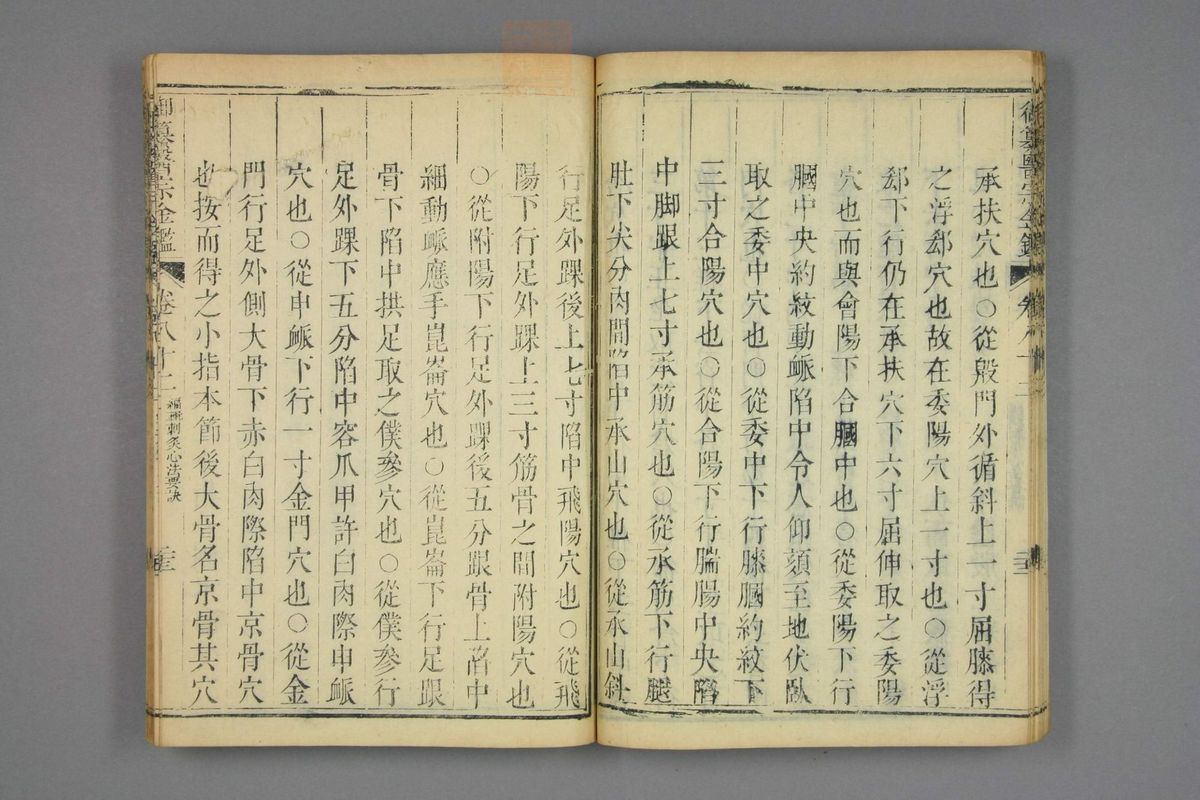 御纂醫宗金鑑
卷八十二
承扶穴也○從殷門外循斜上一寸屈膝得
之浮郄穴也故在委陽穴上一寸也○從浮
郄下行仍在承扶穴下六寸屈伸取之委陽
穴也而與會陽下合膕中也○從委陽下行
膕中央約紋動䘑陷中令人仰頦至地伏臥
取之委中穴也○從委中下行膝膕約紋下
三寸合陽穴也○從合陽下行腨腸中央陷
中脚跟上七寸承筋穴也○從承筋下行腿
肚下尖分肉間陷中承山穴也○從承山斜
行足外踝後上七寸陷中飛陽穴也○從飛
陽下行足外踝上三寸筋骨之間附陽穴也
○從附陽下行足外踝後五分跟骨上陷中
細動䘑應手崑崙穴也○從崑崙下行足跟
骨下陷中拱足取之僕參穴也○從僕參行
足外踝下五分陷中容爪甲許白肉際申䘑
穴也○從申䘑下行一寸金門穴也○從金
門行足外側大骨下赤白肉際陷中京骨穴
也按而得之小指本節後大骨名京骨其穴
御纂醫宗金鑑
卷八十二
編輯刺灸心法要訣